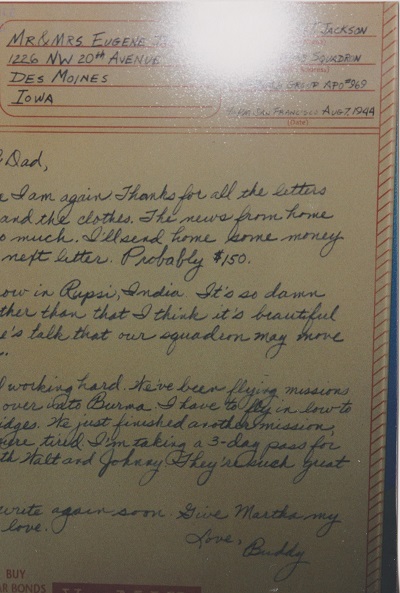 MR & MRS EUGENE
1226 NW 20th AVENUE
DES MOINES
IOWA
JACKSON
SQUADRON
GROUP APO #369
SAN FRANCISCO AUG 7, 1944
(Date)
Dad,
I am again. Thanks for all the letters
and the clothes. The news from home
much. I'll send home some money
next letter. Probably $150.
ow in Rupsi, India. It's so damn
ther than that I think it's beautiful
e's talk that our squadron may move
"
working hard. We've been flying missions
over into Burma. I have to fly in low to
idges. We just finished another mission,
tired. I'm taking a 3-day pass for
th Walt and Johnny. They're such great
write again soon. Give Martha my
love.
Love,
Buddy
BUY
R BONDS